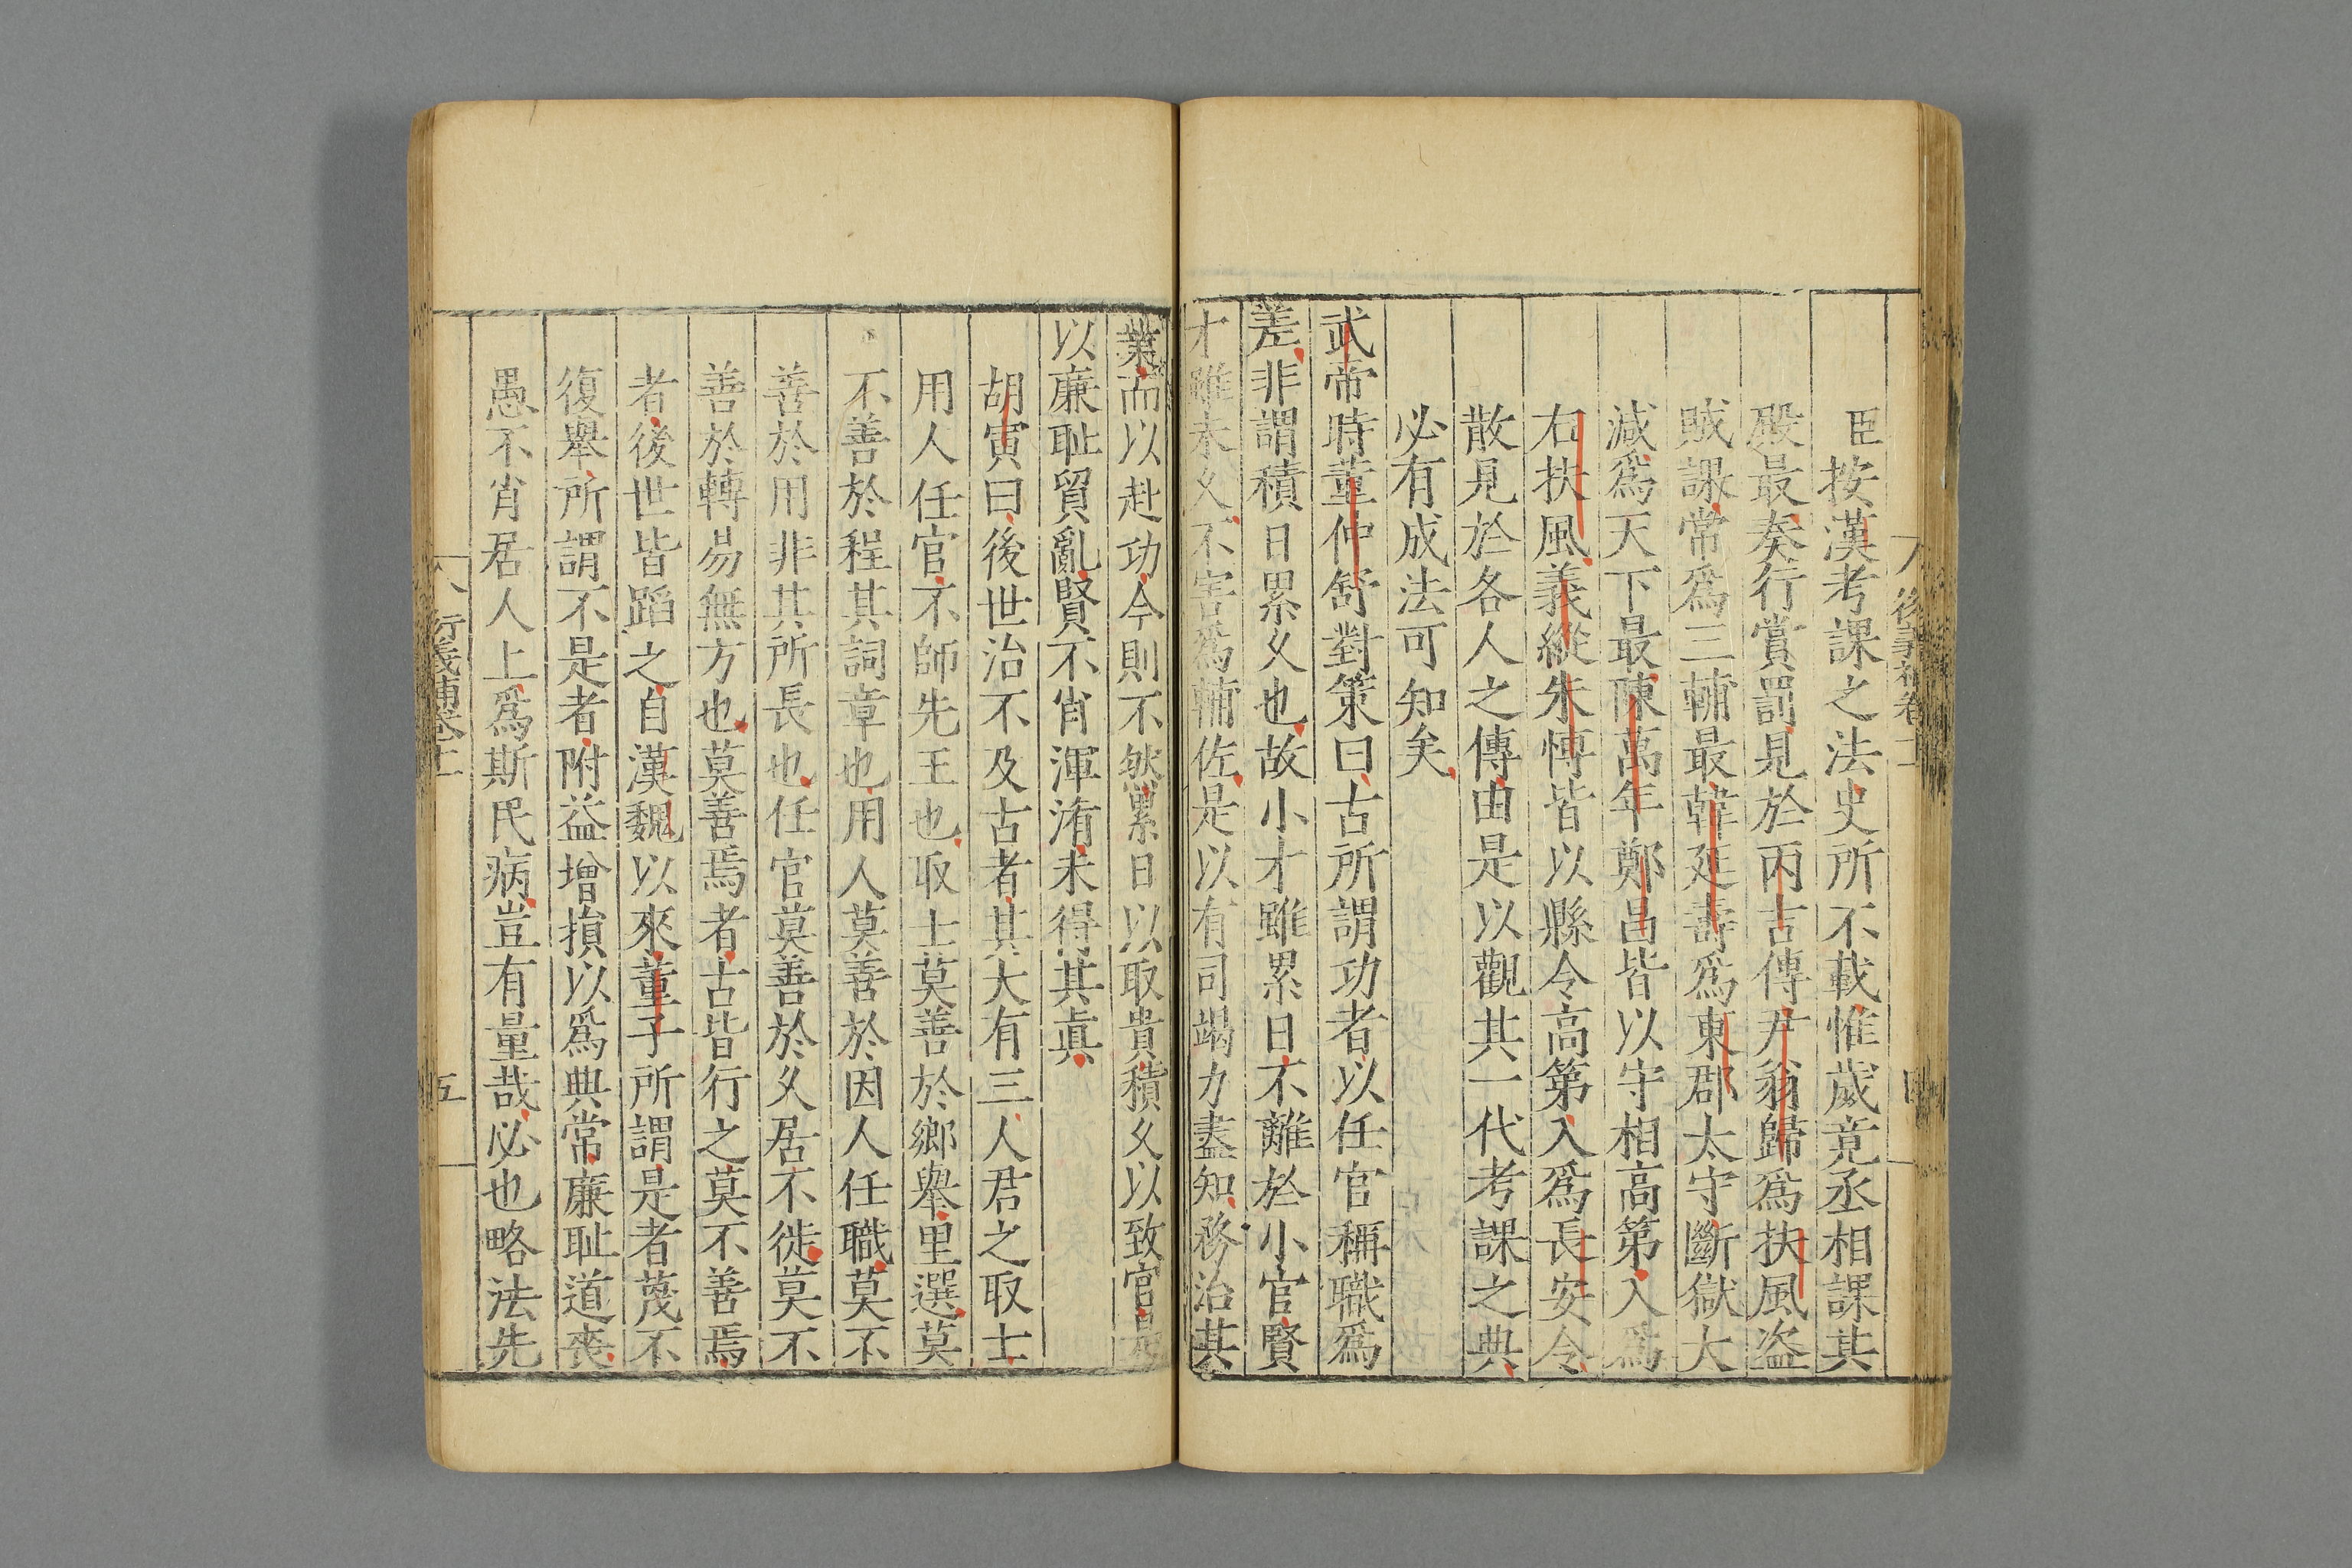 臣按漢考課之法史所不載惟歲竟丞相課其
殿最奏行賞罰見於丙吉傳尹翁歸為扶風盗
賊課常為三輔最韓延壽為東郡太守斷獄大
減為天下最陳萬年鄭昌皆以守相高第入為
右扶風義縱朱博皆以縣令高第入為長安令
散見於各人之傳由是以觀其一代考課之典
必有成法可知矣
武帝時董仲舒對策曰古所謂功者以任官稱職爲
差非謂積日累久也故小才雖累日不離於小官賢
才雖未久不害為輔佐是以有司竭力盡知務治其
業而以赴功今則不然累日以取貴積久以致官是
以廉耻貿亂賢不肖渾淆未得其眞
胡寅曰後世治不及古者其大有三人君之取士
用人任官不師先王也取士莫善於鄉舉里選莫
不善於程其詞章也用人莫善於因人任職莫不
善於用非其所長也任官莫善於久居不徙莫不
善於轉易無方也莫善焉者古皆行之莫不善焉
者後世皆蹈之自漢魏以來董子所謂是者蔑不
復舉所謂不是者附益增損以爲典常廉耻道喪
愚不肖居人上爲斯民病豈有量哉必也略法先
五